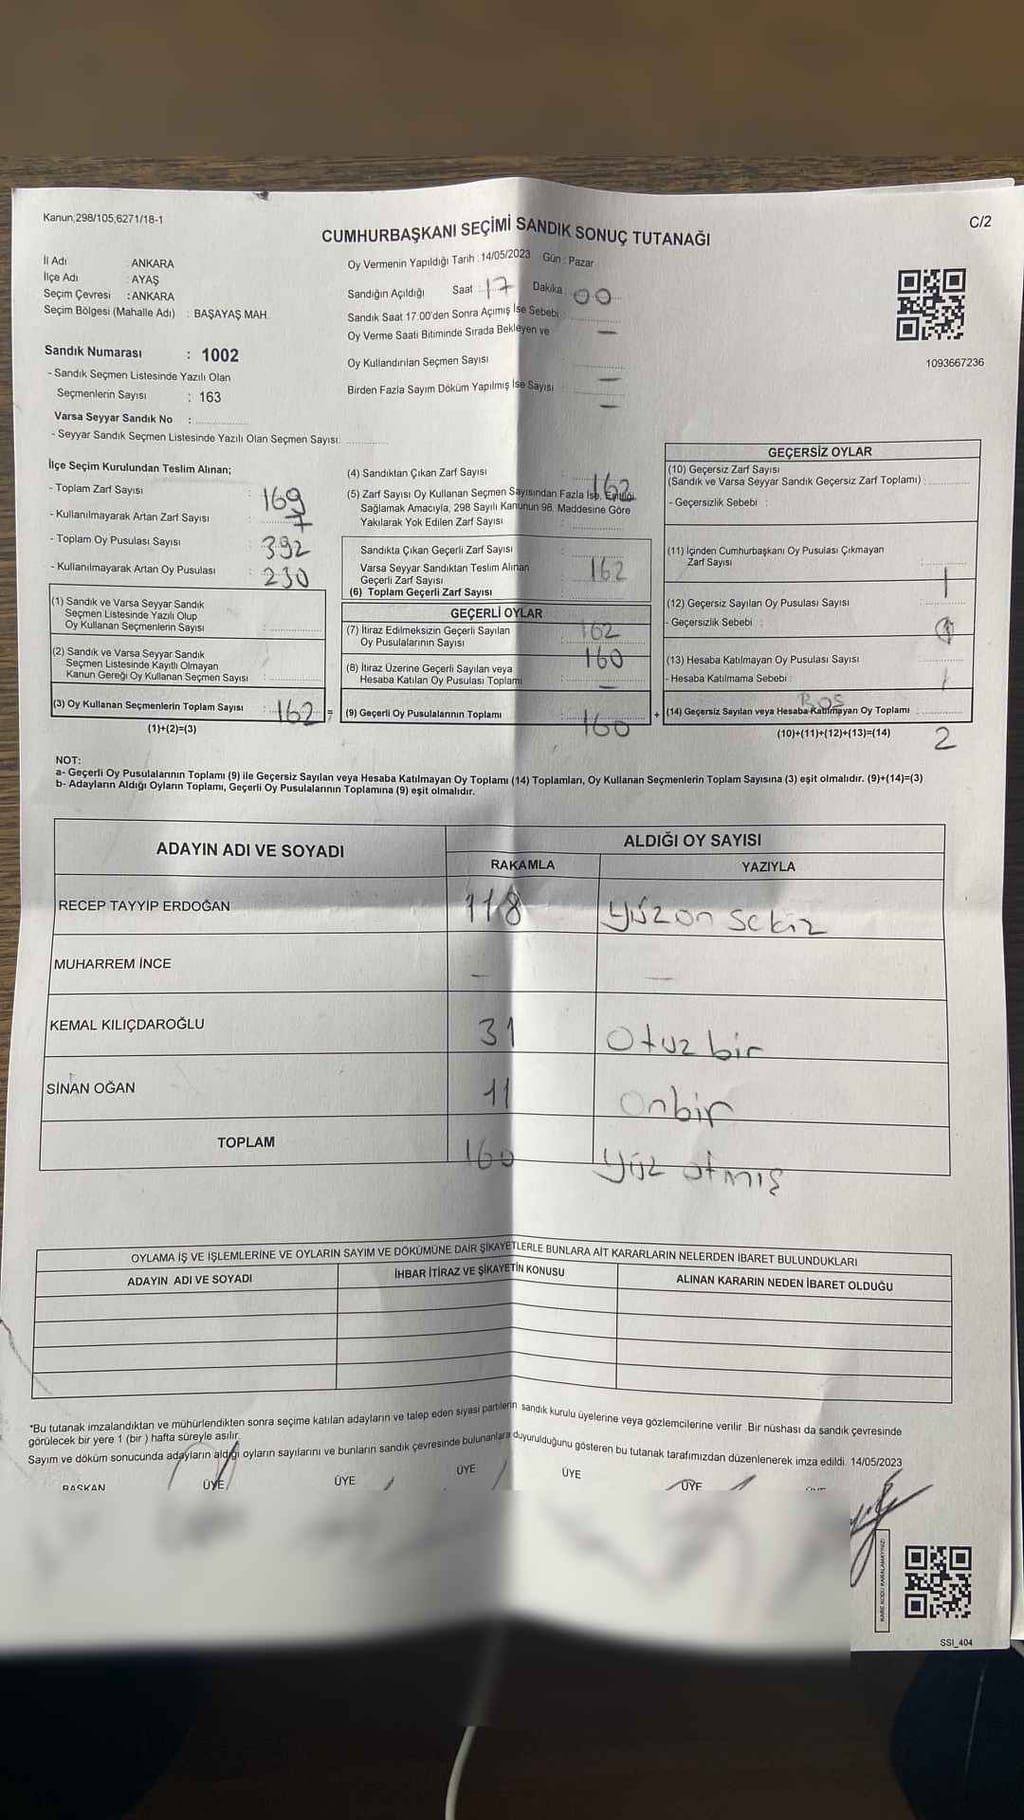 Kanun,298/105,6271/18-1
C/2
CUMHURBAŞKANI SEÇİMİ SANDIK SONUÇ TUTANAĞI
İl Adı ANKARA
İlçe Adı : AYAŞ
Seçim Çevresi : ANKARA
Seçim Bölgesi (Mahalle Adı) : BAŞAYAŞ MAH.
Sandık Numarası : 1002
- Sandık Seçmen Listesinde Yazılı Olan
Seçmenlerin Sayısı : 163
Varsa Seyyar Sandık No :
- Seyyar Sandık Seçmen Listesinde Yazılı Olan Seçmen Sayısı:
Oy Vermenin Yapıldığı Tarih : 14/05/2023 Gün : Pazar
Sandığın Açıldığı Saat : 17 Dakika : 00
Sandık Saat 17:00'den Sonra Açımış İse Sebebi :
Oy Verme Saati Bitiminde Sırada Bekleyen ve —
Oy Kullandırılan Seçmen Sayısı
Birden Fazla Sayım Döküm Yapılmış İse Sayısı —
—
1093667236
İlçe Seçim Kurulundan Teslim Alınan;
- Toplam Zarf Sayısı : 169
- Kullanılmayarak Artan Zarf Sayısı : 7
- Toplam Oy Pusulası Sayısı : 392
- Kullanılmayarak Artan Oy Pusulası : 230
(1) Sandık ve Varsa Seyyar Sandık
Seçmen Listesinde Yazılı Olup
Oy Kullanan Seçmenlerin Sayısı :
(2) Sandık ve Varsa Seyyar Sandık
Seçmen Listesinde Kayıtlı Olmayan
Kanun Gereği Oy Kullanan Seçmen Sayısı :
(3) Oy Kullanan Seçmenlerin Toplam Sayısı : 162 =
(1)+(2)=(3)
(4) Sandıktan Çıkan Zarf Sayısı : 162
(5) Zarf Sayısı Oy Kullanan Seçmen Sayısından Fazla İse, Eşitliği
Sağlamak Amacıyla, 298 Sayılı Kanunun 98. Maddesine Göre
Yakılarak Yok Edilen Zarf Sayısı :
Sandıkta Çıkan Geçerli Zarf Sayısı :
Varsa Seyyar Sandıktan Teslim Alınan
Geçerli Zarf Sayısı : 162
(6) Toplam Geçerli Zarf Sayısı
GEÇERLİ OYLAR
(7) İtiraz Edilmeksizin Geçerli Sayılan 162
Oy Pusulalarının Sayısı
160
(8) İtiraz Üzerine Geçerli Sayılan veya
Hesaba Katılan Oy Pusulası Toplamı : —
(9) Geçerli Oy Pusulalarının Toplamı : 160 +
GEÇERSİZ OYLAR
(10) Geçersiz Zarf Sayısı
(Sandık ve Varsa Seyyar Sandık Geçersiz Zarf Toplamı) :
- Geçersizlik Sebebi :
(11) İçinden Cumhurbaşkanı Oy Pusulası Çıkmayan
Zarf Sayısı : 1
(12) Geçersiz Sayılan Oy Pusulası Sayısı :
- Geçersizlik Sebebi :
(13) Hesaba Katılmayan Oy Pusulası Sayısı :
- Hesaba Katılmama Sebebi :
BOŞ
(14) Geçersiz Sayılan veya Hesaba Katılmayan Oy Toplamı :
(10)+(11)+(12)+(13)=(14) 2
NOT:
a- Geçerli Oy Pusulalarının Toplamı (9) ile Geçersiz Sayılan veya Hesaba Katılmayan Oy Toplamı (14) Toplamları, Oy Kullanan Seçmenlerin Toplam Sayısına (3) eşit olmalıdır. (9)+(14)=(3)
b- Adayların Aldığı Oyların Toplamı, Geçerli Oy Pusulalarının Toplamına (9) eşit olmalıdır.
ADAYIN ADI VE SOYADI ALDIĞI OY SAYISI
RAKAMLA YAZIYLA
RECEP TAYYİP ERDOĞAN 118 yüz on sekiz
MUHARREM İNCE — —
KEMAL KILIÇDAROĞLU 31 Otuz bir
SİNAN OĞAN 11 Onbir
TOPLAM 160 yüz atmış
OYLAMA İŞ VE İŞLEMLERİNE VE OYLARIN SAYIM VE DÖKÜMÜNE DAİR ŞİKAYETLERLE BUNLARA AİT KARARLARIN NELERDEN İBARET BULUNDUKLARI
ADAYIN ADI VE SOYADI İHBAR İTİRAZ VE ŞİKAYETİN KONUSU ALINAN KARARIN NEDEN İBARET OLDUĞU
*Bu tutanak imzalandıktan ve mühürlendikten sonra seçime katılan adayların ve talep eden siyasi partilerin sandık kurulu üyelerine veya gözlemcilerine verilir. Bir nüshası da sandık çevresinde
görülecek bir yere 1 (bir ) hafta süreyle asılır.
Sayım ve döküm sonucunda adayların aldığı oyların sayılarını ve bunların sandık çevresinde bulunanlara duyurulduğunu gösteren bu tutanak tarafımızdan düzenlenerek imza edildi. 14/05/2023
BAŞKAN ÜYE ÜYE ÜYE ÜYE ÜYE
SSİ_404